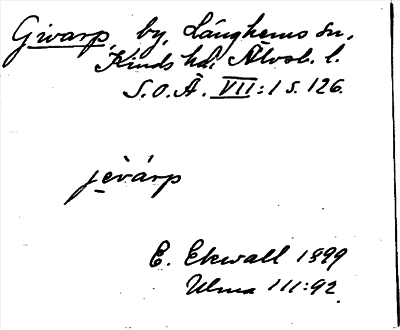 Givarp, by, Långhems sn,
Kinds hd, Älvsb. l.
S.O.Ä. VII:1 s. 126.
jèvárp
E. Ekwall 1899
Ulma 111:92.